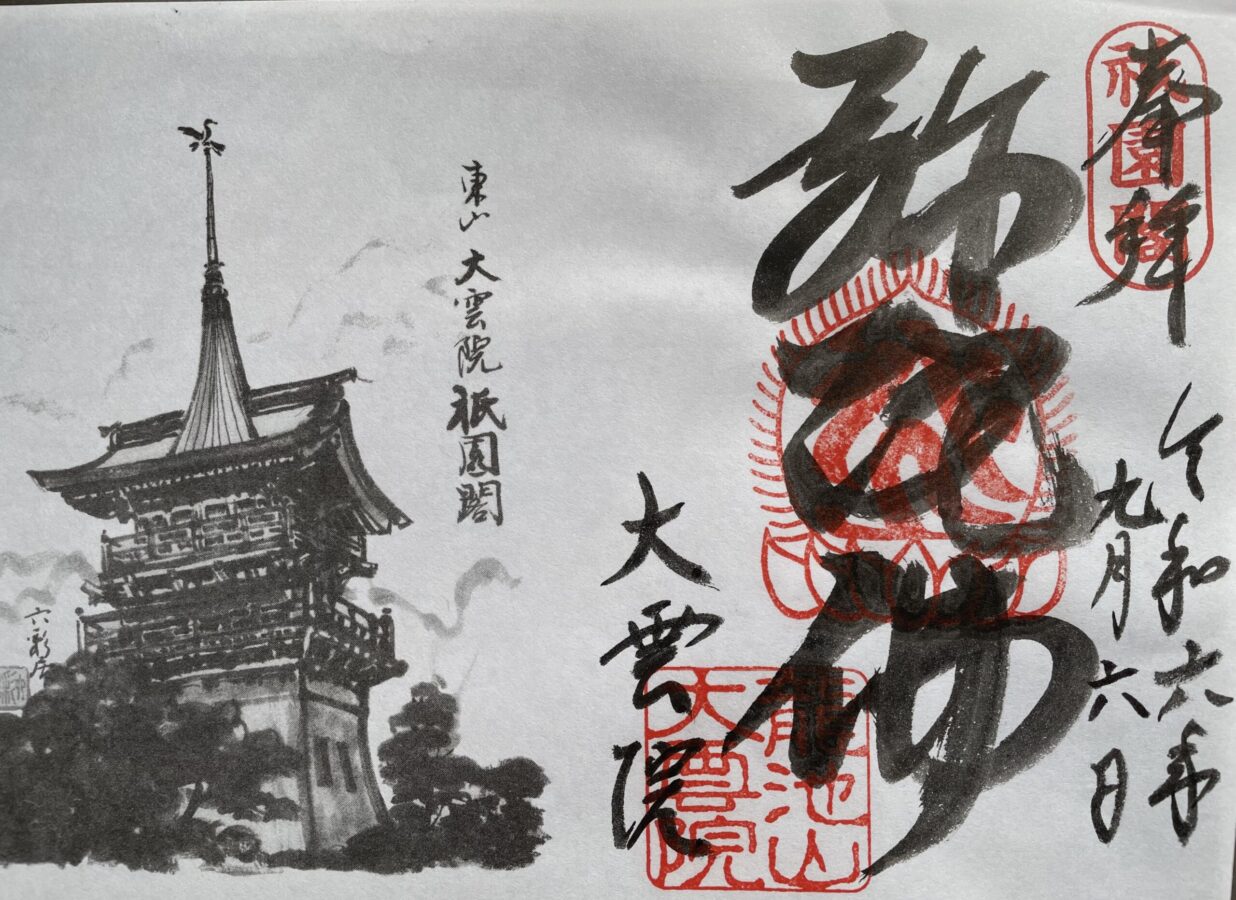 奉拝
祇園閣
令和六年
九月六日
弥陀佛
大雲院
龍池山
大雲院
東山 大雲院 祇園閣